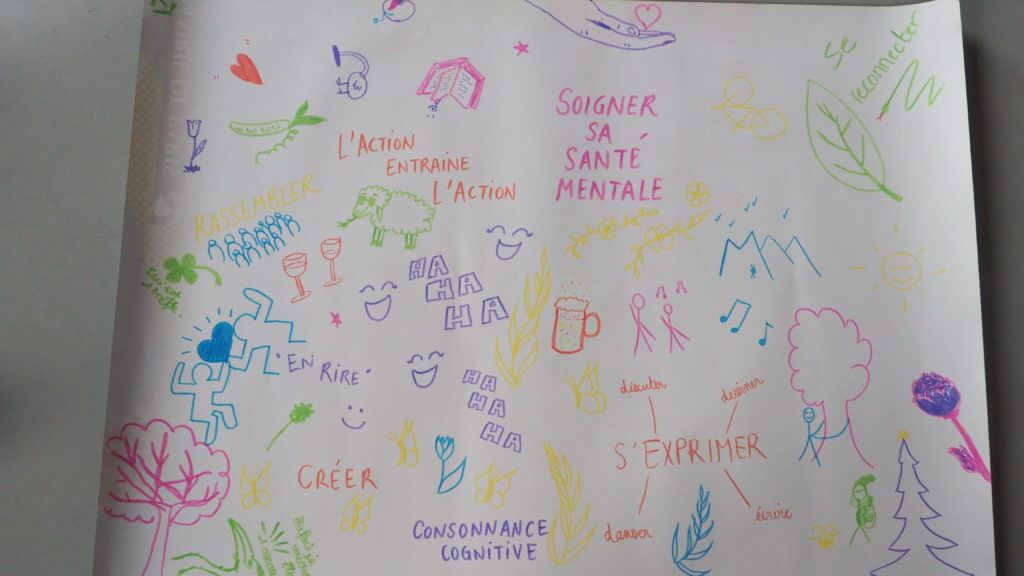 Se
reconnecter
SOIGNER
SA
SANTÉ
MENTALE
L'ACTION
ENTRAINE
L'ACTION
RASSEMBLER
HA
HA
HA
"EN RIRE"
HA
HA
HA
discuter
dessiner
S'EXPRIMER
danser
écrire
CRÉER
CONSONNANCE
COGNITIVE